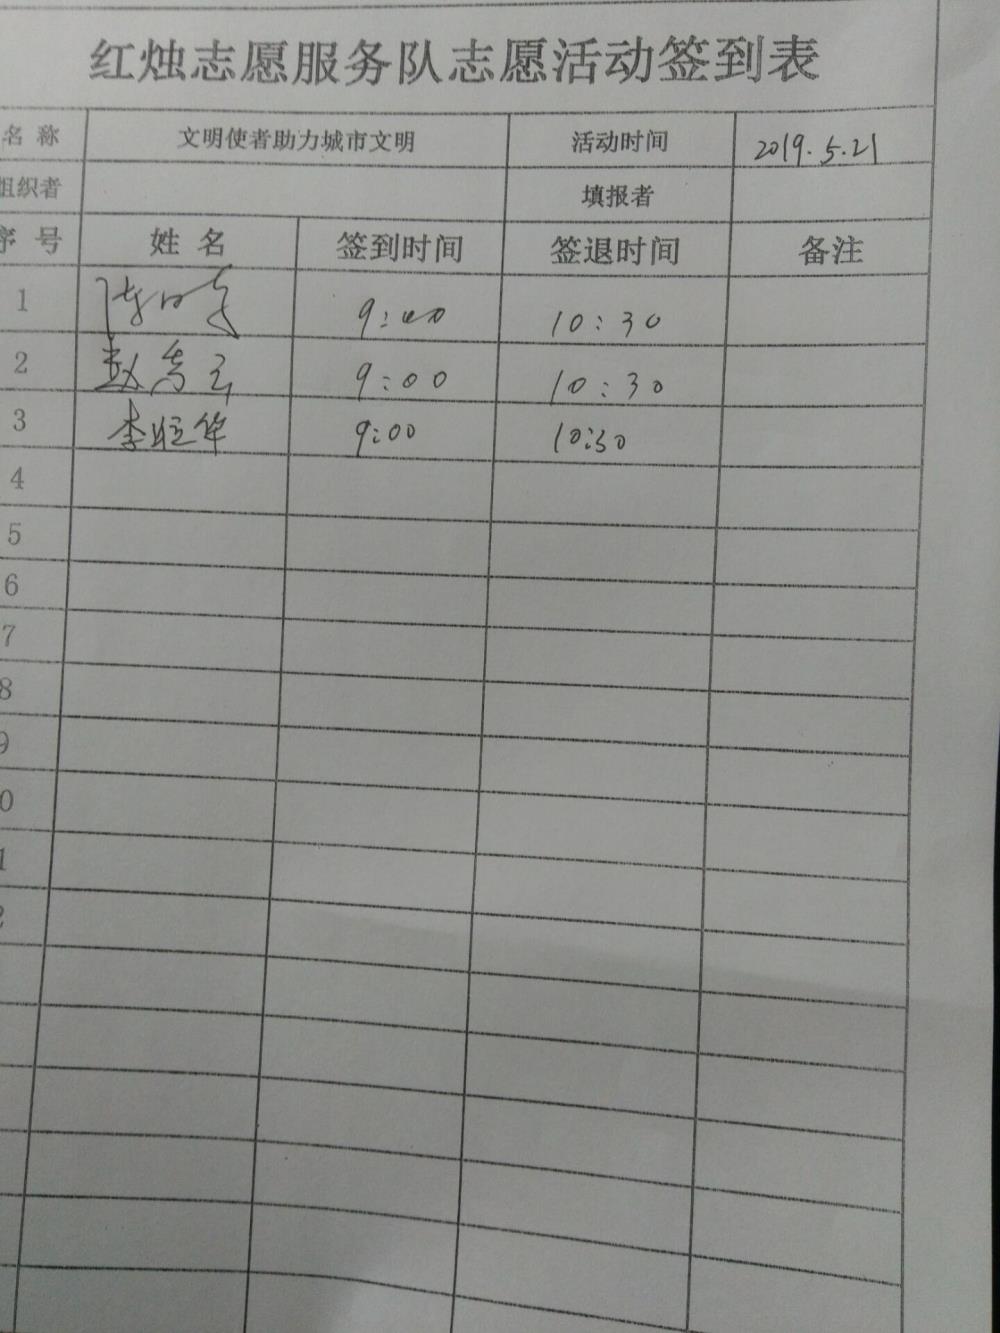 红烛志愿服务队志愿活动签到表
名 称 文明使者助力城市文明 活动时间 2019.5.21
组织者 填报者
序 号 姓 名 签到时间 签退时间 备注
1 9:00 10:30
2 赵 9:00 10:30
3 李旺华 9:00 10:30
4
5
6
7
8
9
0
1
2